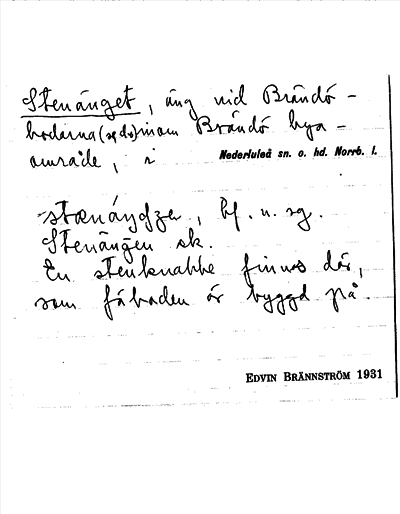 Stenänget, äng vid Brändö-
bodarna (se do) inom Brändö bya-
område, i Nederluleå sn. o. hd. Norrb. l.
bf. n. sg.
Stenängen sk.
En stenknabbe finns där,
som fäboden är byggd på.
EDVIN BRÄNNSTRÖM 1931